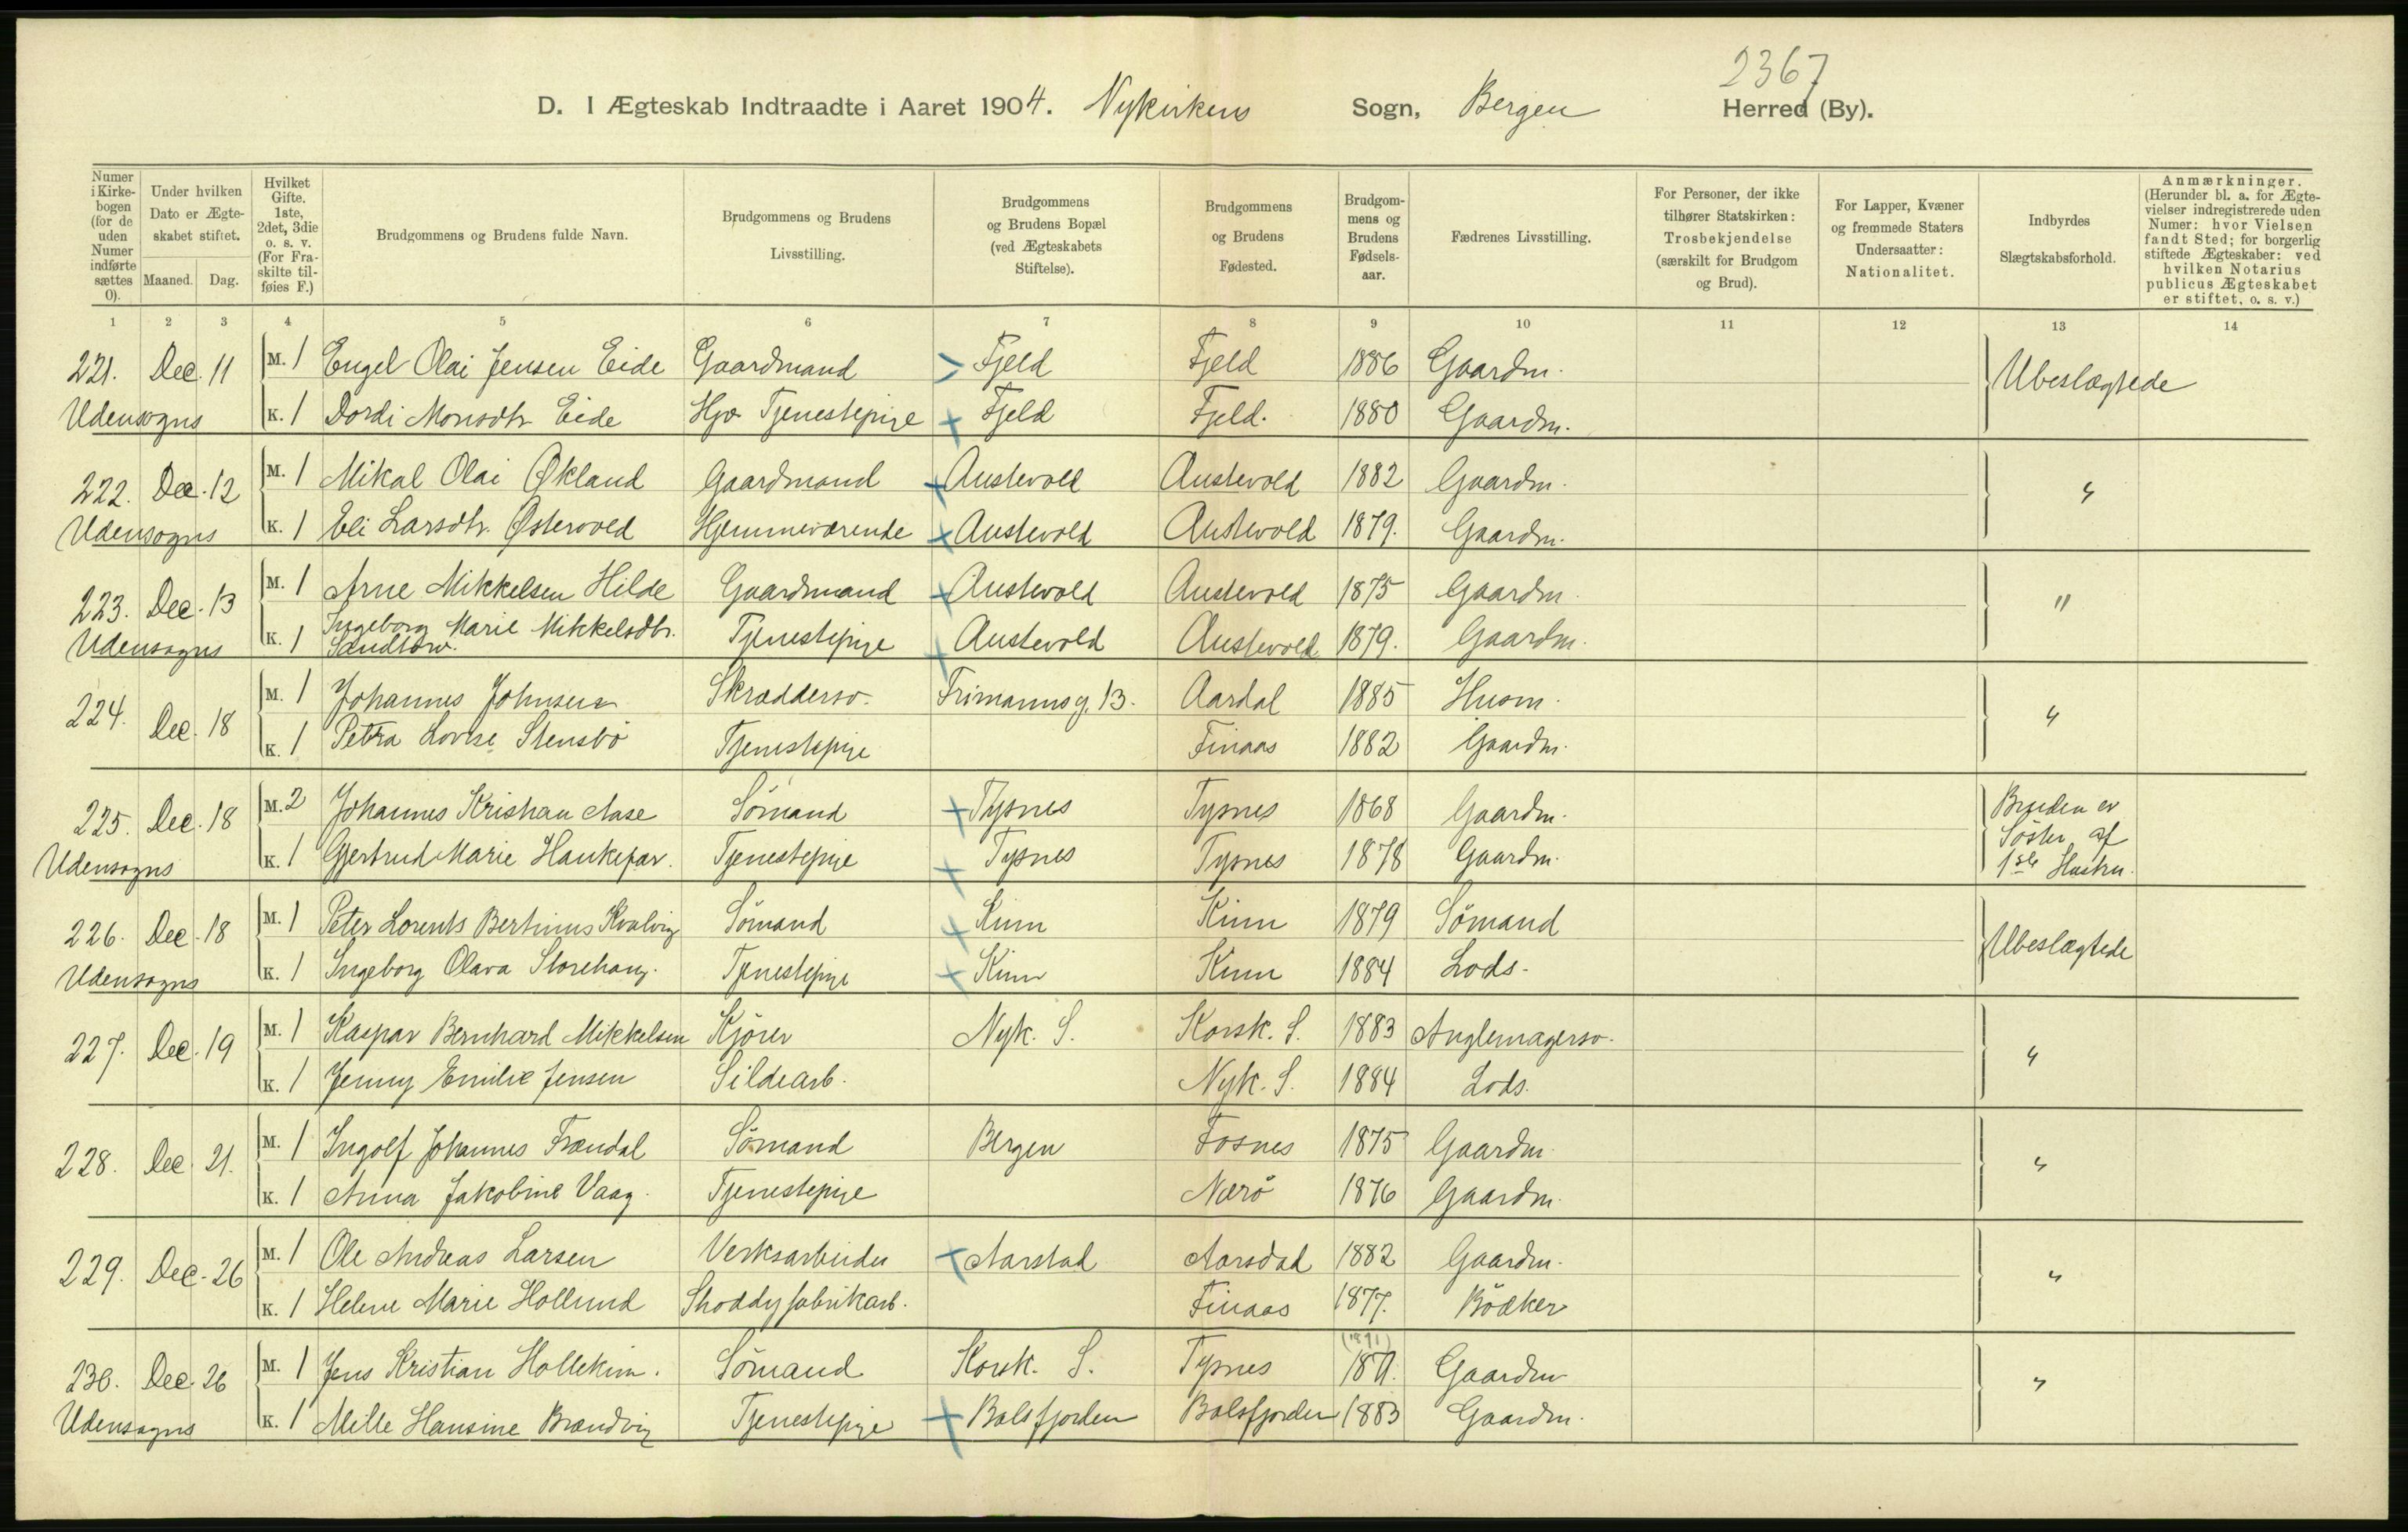 2367
D. I Ægteskab Indtraadte i Aaret 1904. Nykirkens Sogn, Bergen Herred (By).
Numer i Kirkebogen (for de uden Numer indførte sættes 0).
Under hvilken Dato er Ægteskabet stiftet. Maaned. Dag.
Hvilket Gifte. 1ste, 2det, 3die o. s. v. (For Fraskilte tilføies F.)
Brudgommens og Brudens fulde Navn.
Brudgommens og Brudens Livsstilling.
Brudgommens og Brudens Bopæl (ved Ægteskabets Stiftelse).
Brudgommens og Brudens Fødested.
Brudgommens og Brudens Fødselsaar.
Fædrenes Livsstilling.
For Personer, der ikke tilhører Statskirken: Trosbekjendelse (særskilt for Brudgom og Brud).
For Lapper, Kvæner og fremmede Staters Undersaatter: Nationalitet.
Indbyrdes Slægtskabsforhold.
Anmærkninger. (Herunder bl. a. for Ægtevielser indregistrerede uden Numer: hvor Vielsen fandt Sted; for borgerlig stiftede Ægteskaber: ved hvilken Notarius publicus Ægteskabet er stiftet, o. s. v.)
1 2 3 4 5 6 7 8 9 10 11 12 13 14
221. Dec. 11 M. 1 Engel Olai Jensen Eide Gaardmand Fjeld Fjeld 1886 Gaardm. Ubeslægtede
Udensogns K. 1 Dordi Monsdtr Eide Hjv Tjenestepige Fjeld Fjeld. 1880 Gaardm.
222. Dec. 12 M. 1 Mikal Olai Økland Gaardmand Austevold Austevold 1882 Gaardm. "
Udensogns K. 1 Eli Larsdtr. Østervold Hjemmeværende Austevold Austevold 1879. Gaardm.
223. Dec. 13 M. 1 Arne Mikkelsen Hilde Gaardmand Austevold Austevold 1875 Gaardm. "
Udensogns K. 1 Ingeborg Marie Mikkelsdtr. Tjenestepige Austevold Austevold 1879. Gaardm.
224. Dec. 18 M. 1 Johannes Johnsen Skræddersv. Frimannsg. 13. Aardal 1885 Husm. "
K. 1 Petra Lovise Stensbö Tjenestepige Finaas 1882 Gaardm.
225. Dec. 18 M. 2 Johannes Kristian Aase Sömand Tysnes Tysnes 1868 Gaardm. Bruden er Söster af 1ste Hustru.
Udensogns K. 1 Gjertrud Marie Tjenestepige Tysnes Tysnes 1878 Gaardm.
226. Dec. 18 M. 1 Peter Lorents Bertinius Kvalvig Sömand Kinn Kinn 1879 Sömand Ubeslægtede
Udensogns K. 1 Ingeborg Olava Storehaug. Tjenestepige Kinn Kinn 1884 Lods.
227. Dec. 19 M. 1 Kaspar Bernhard Mikkelsen Kjörer Nyk. S. Korsk. S. 1883 Anglemagersv. "
K. 1 Jenny Emilie Jensen Sildearb. Nyk. S. 1884 Lods.
228. Dec. 21. M. 1 Ingolf Johannes Frændal Sömand Bergen Fosnes 1875 Gaardm. "
K. 1 Anna Jakobine Vaag. Tjenestepige Nærö 1876 Gaardm.
229. Dec. 26 M. 1 Ole Andreas Larsen Verksarbeider Aarstad Aarsdad 1882 Gaardm. "
K. 1 Helene Marie Hollund Shoddyfabrikarb. Finaas 1877. Bödker
230. Dec. 26 M. 1 Jens Kristian Hollekim. Sömand Korsk. S. Tysnes (1871) 1871. Gaardm. "
Udensogns K. 1 Mille Hansine Brændvig Tjenestepige Balsfjorden Balsfjorden 1883 Gaardm.